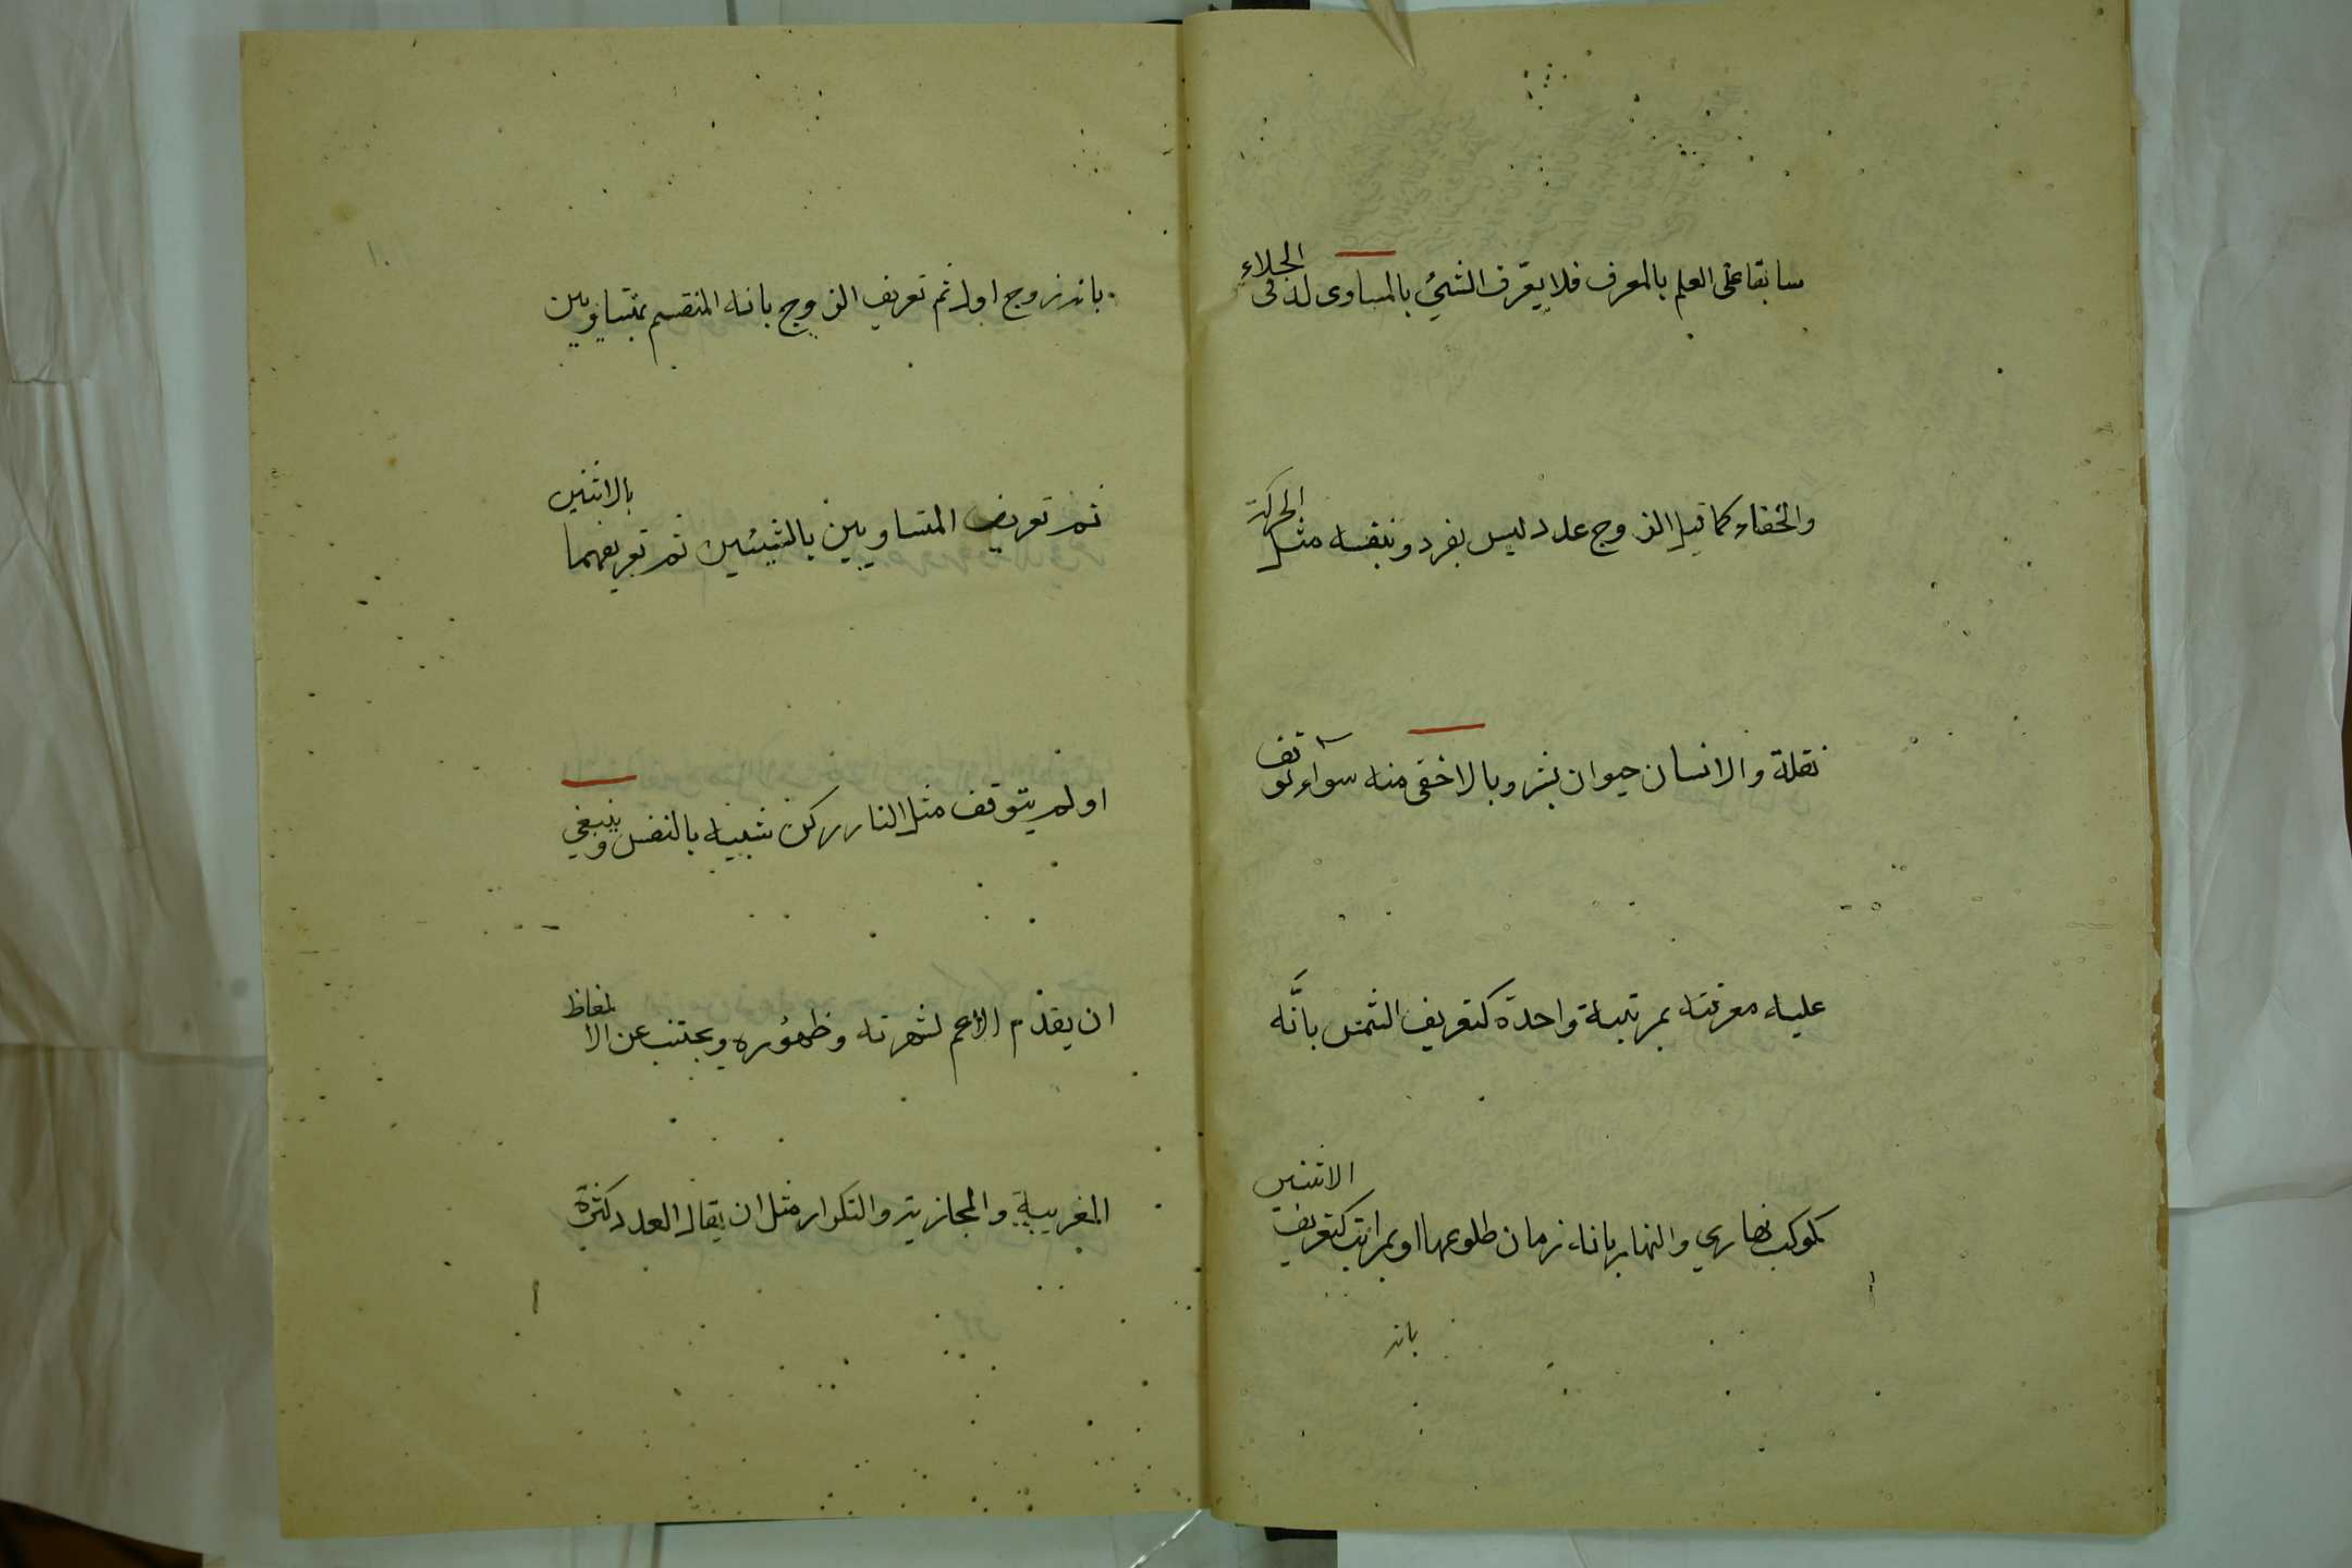 سابقا على العلم بالمعرف فلا يعّرف الشئ بالمساوى له فى الجلاء
والخفاء كما قيل الزوج عدد ليس بفرد وبنفسه مثل الحركة
نقلة والانسان حيوان بشر وبالاخفى منه سوآء توقف
عليه معرفته بمرتبة واحدة كتعريف الشمس بانَّه
كوكب نهاري والنهار بانه زمان طلوعها او بمراتب كتعريف الاثنين
بانه
بانه زوج اول ثم تعريف الزوج بانه المنقسم بمتساويين
ثم تعريف المتساويين بالشيئين ثم تعريفهما بالاثنين
او لم يتوقف مثل النار ركن شبيه بالنفس وينبغي
ان يقدّم الاعم لشهرته وظهوره ويجتنب عن الالفاظ
الغريبة والمجازية والتكرار مثل ان يقال العدد كثرة